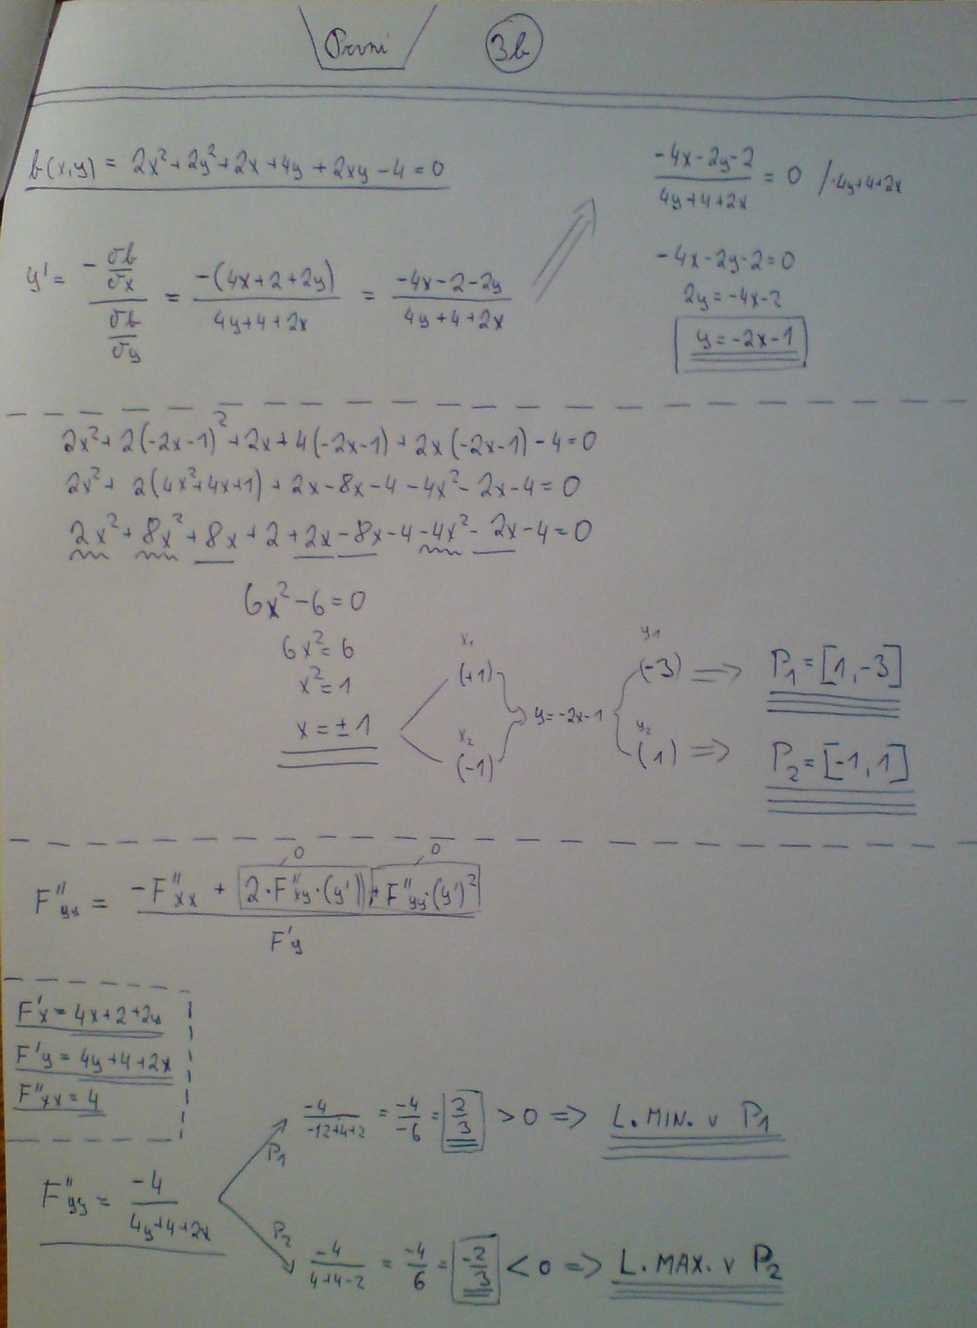 První 3b
b(x,y) = 2x²+2y²+2x+4y+2xy-4=0
y' = -σb/σx / σb/σy = -(4x+2+2y)/4y+4+2x = -4x-2-2y/4y+4+2x
-4x-2y-2/4y+4+2x = 0 /·4y+4+2x
-4x-2y-2=0
2y=-4x-2
y=-2x-1
2x²+2(-2x-1)²+2x+4(-2x-1)+2x(-2x-1)-4=0
2x²+ 2(4x²+4x+1)+2x-8x-4-4x²-2x-4=0
2x²+8x²+8x+2+2x-8x-4-4x²-2x-4=0
6x²-6=0
6x²=6
x²=1
x=±1
x₁
(+1)
x₂
(-1)
y=-2x-1
y₁
(-3) => P₁=[1,-3]
y₂
(1) => P₂=[-1,1]
F''yx = -F''xx + 2·F''xy·(y') + F''yy·(y')² / F'y
0 0
F'x=4x+2+2y
F'y=4y+4+2x
F''xx=4
F''yy = -4/4y+4+2x
P₁ -4/-12+4+2 = -4/-6 = 2/3 >0 => L.MIN. v P₁
P₂ -4/4+4-2 = -4/6 = -2/3 <0 => L.MAX. v P₂